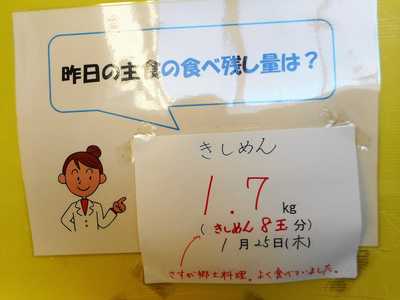 昨日の主食の食べ残し量は？
きしめん
1.7 kg
(きしめん 8玉 分)
1月25日(木)
さすが郷土料理。よく食べていました。